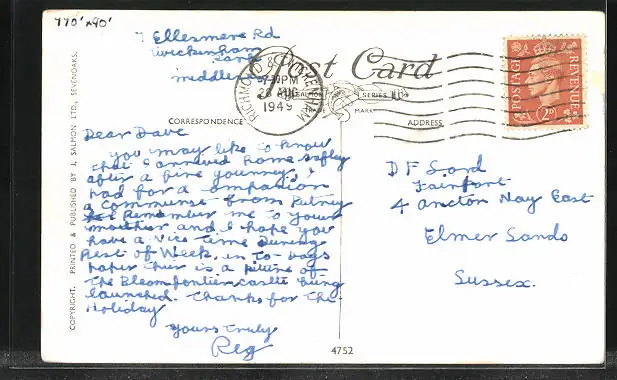 770' x 90'
7 Ellesmere Rd
Twickenham
Park
Middlesex
Post Card
RICHMOND & TWICKENHAM
7-PM
26 AUG
1949
SALMON SERIES
TRADE MARK
POSTAGE REVENUE
2D
CORRESPONDENCE
ADDRESS
COPYRIGHT. PRINTED & PUBLISHED BY J. SALMON LTD., SEVENOAKS.
Dear Dave
you may like to know
that I arrived home safley
after a fine journey, I
had for a companion
a Communse from Putney
Remember me to your
mother and I hope you
have a Nice time During
Rest of Week, in To-days
paper their is a picture of
The Bloemfontien castle being
launched. Thanks for The
Holiday
yours Truly
Reg
D F Sord
Fairport
4 Ancton Way East
Elmer Sands
Sussex.
4752